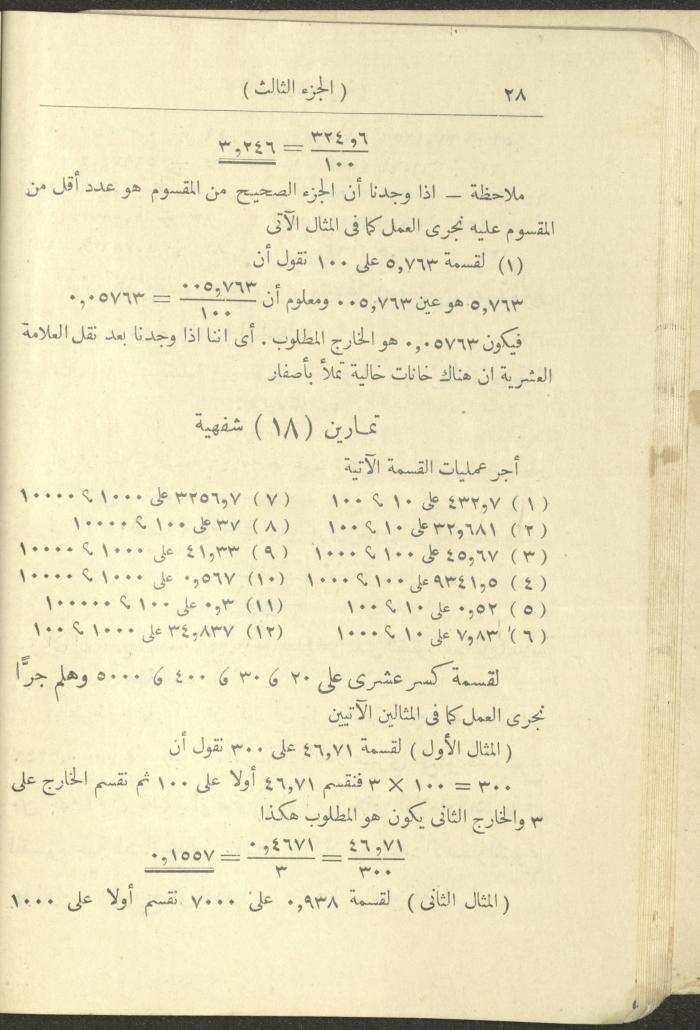 ٢٨ ( الجزء الثالث )
٣٢٤,٦ / ١٠٠ = ٣,٢٤٦
ملاحظة — اذا وجدنا أن الجزء الصحيح من المقسوم هو عدد أقل من
المقسوم عليه نجرى العمل كما فى المثال الآتى
(١) لقسمة ٥,٧٦٣ على ١٠٠ نقول أن
٥,٧٦٣ هو عين ٠٠٥,٧٦٣ ومعلوم أن ٠٠٥,٧٦٣ / ١٠٠ = ٠,٠٥٧٦٣
فيكون ٠,٠٥٧٦٣ هو الخارج المطلوب . أى اننا اذا وجدنا بعد نقل العلامة
العشرية ان هناك خانات خالية تملأ بأصفار
تمارين (١٨) شفهية
أجر عمليات القسمة الآتية
(١) ٤٣٢,٧ على ١٠ ؟ ١٠٠ (٧) ٣٢٥٦,٧ على ١٠٠٠ ؟ ١٠٠٠٠
(٢) ٣٢,٦٨١ على ١٠ ؟ ١٠٠ (٨) ٣٧ على ١٠٠ ؟ ١٠٠٠٠
(٣) ٤٥,٦٧ على ١٠٠ ؟ ١٠٠٠ (٩) ٤١,٣٣ على ١٠٠٠ ؟ ١٠٠٠٠
(٤) ٩٣٤١,٥ على ١٠٠ ؟ ١٠٠٠ (١٠) ٠,٥٦٧ على ١٠٠٠ ؟ ١٠٠٠٠
(٥) ٠,٥٢ على ١٠ ؟ ١٠٠ (١١) ٠,٣ على ١٠٠ ؟ ١٠٠٠٠٠
(٦) ٧,٨٣ على ١٠ ؟ ١٠٠٠ (١٢) ٣٤,٨٣٧ على ١٠٠٠ ؟ ١٠٠
لقسمة كسر عشرى على ٢٠ و ٣٠ و ٤٠٠ و ٥٠٠٠ وهلم جرًّا
نجرى العمل كما فى المثالين الآتيين
( المثال الأول ) لقسمة ٤٦,٧١ على ٣٠٠ نقول أن
٣٠٠ = ١٠٠ × ٣ فنقسم ٤٦,٧١ أولا على ١٠٠ ثم نقسم الخارج على
٣ والخارج الثانى يكون هو المطلوب هكذا
٤٦,٧١ / ٣٠٠ = ٠,٤٦٧١ / ٣ = ٠,١٥٥٧
( المثال الثانى ) لقسمة ٠,٩٣٨ على ٧٠٠٠ نقسم أولا على ١٠٠٠